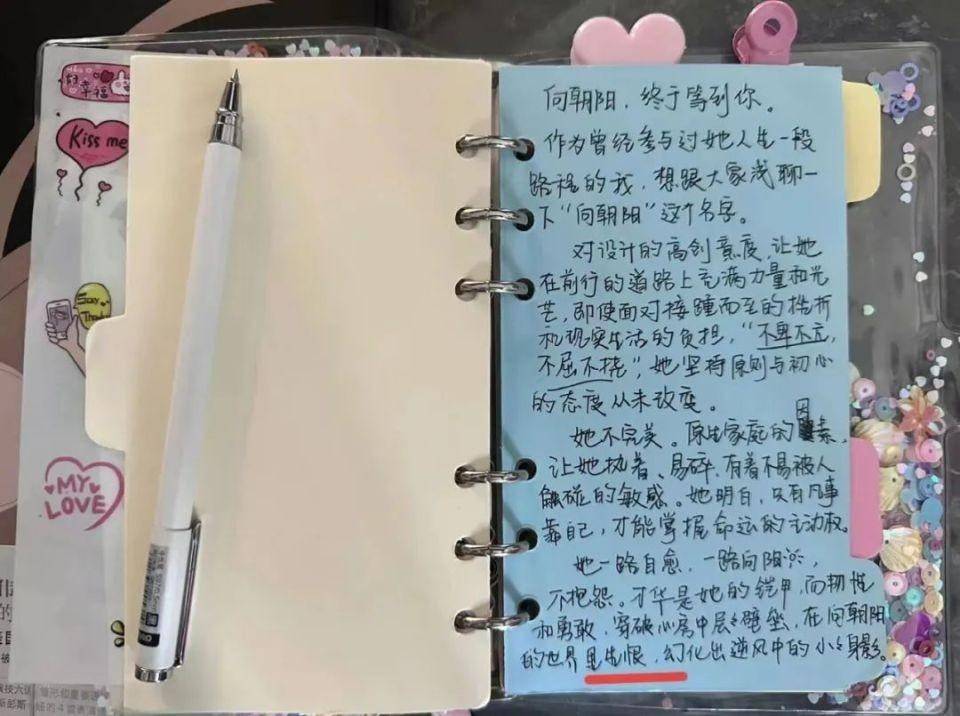 好幸福
Kiss me
MY
LOVE
向朝阳，终于等到你。
作为曾经参与过她人生一段
路程的我，想跟大家浅聊一
下“向朝阳”这个名字。
对设计的高创意度，让她
在前行的道路上充满力量和光
芒，即使面对接踵而至的挫折
和现实生活的负担，“不卑不亢，
不屈不挠”，她坚持原则与初心
的态度从未改变。
她不完美。原生家庭的因素，
让她执着、易碎，有着不易被人
触碰的敏感。她明白，只有凡事
靠自己，才能掌握命运的主动权。
她一路自愈，一路向阳，
不抱怨。才华是她的铠甲，而韧性
和勇敢，穿破心房中层层壁垒，在向朝阳
的世界里生根，幻化出逆风中的小小身影。